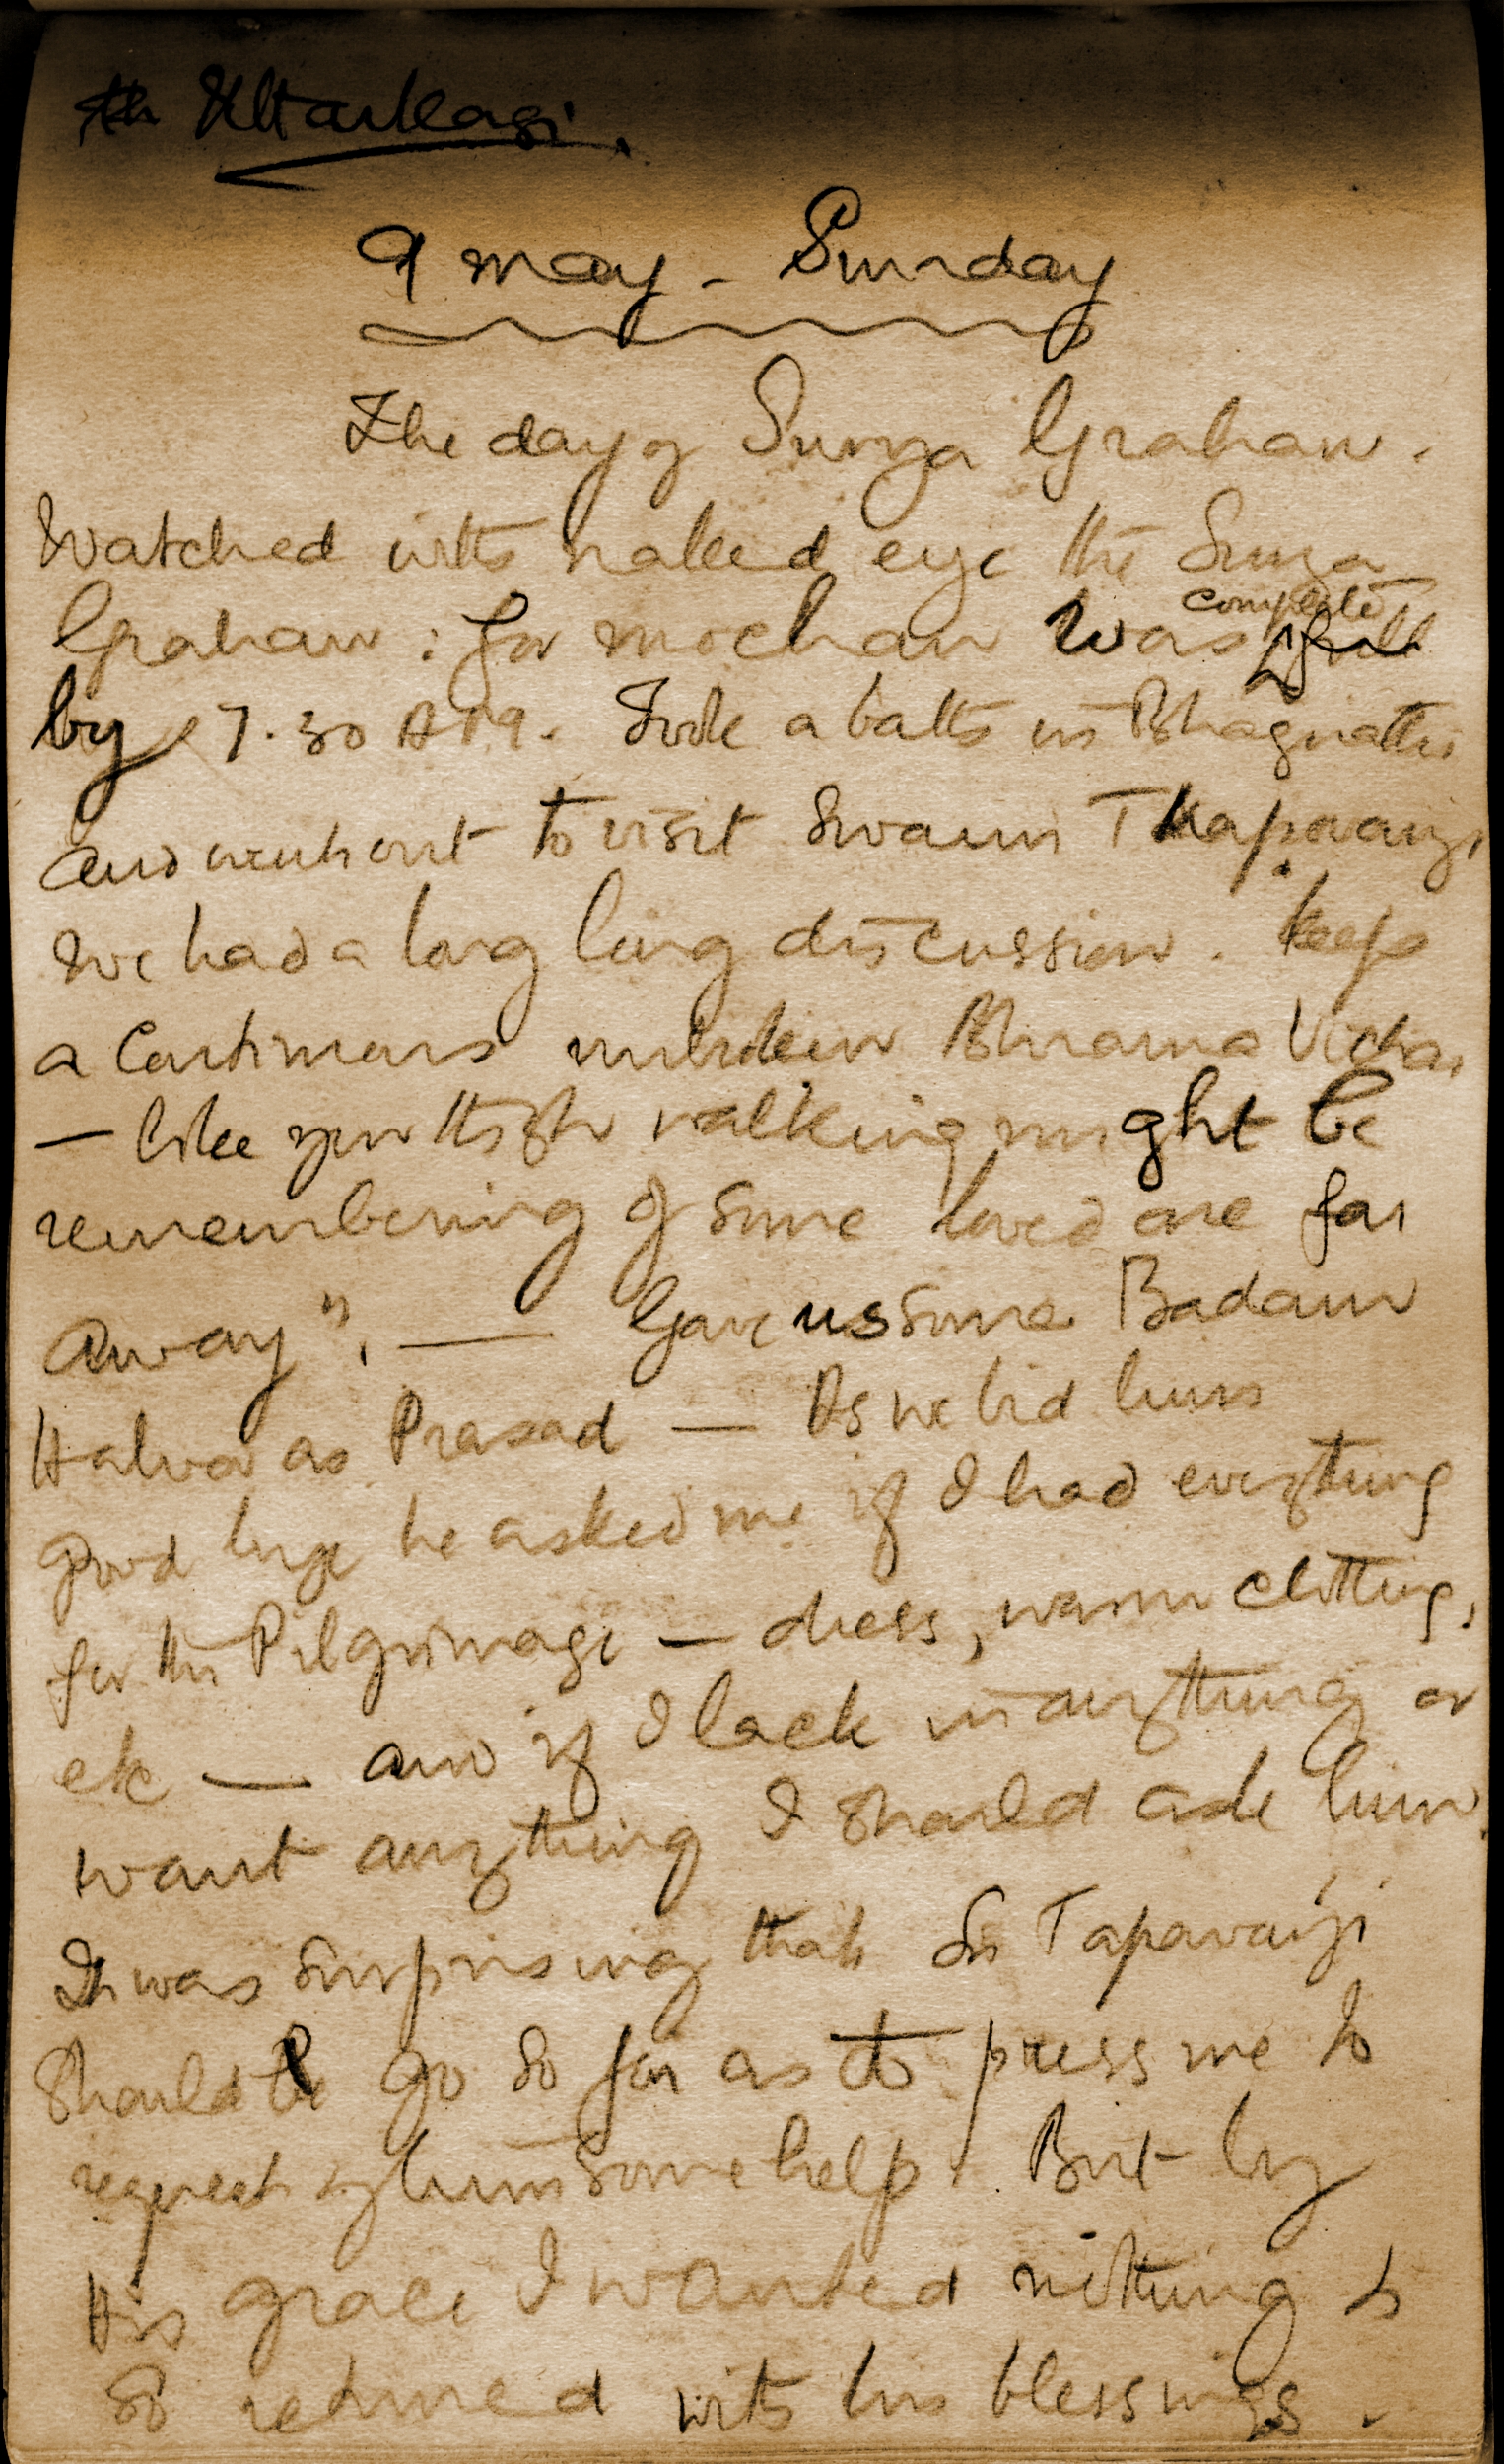 Uttarkasi.
9 May - Sunday
The day of Surya Grahan.
Watched with naked eye the Surya
complete
Grahan: for mochan was full
by 7.30 AM. Took a bath in Bhagirathi
and went out to visit Swami Tapovanji
We had a long long discussion. keep
a continuous unbroken Bhrama Vichar
— like you might be
remembering of some loved one far
away". — Gave us some Badam
Halwa as Prasad — As we bid him
good bye he asked me if I had everything
for the Pilgrimage — dress, warm clothing,
etc — and if I lack in anything or
want anything I should ask him.
It was surprising that Sri Tapovanji
should go so far as to press me to
request of him some help. But by
His grace I wanted nothing &
so returned with his blessings.